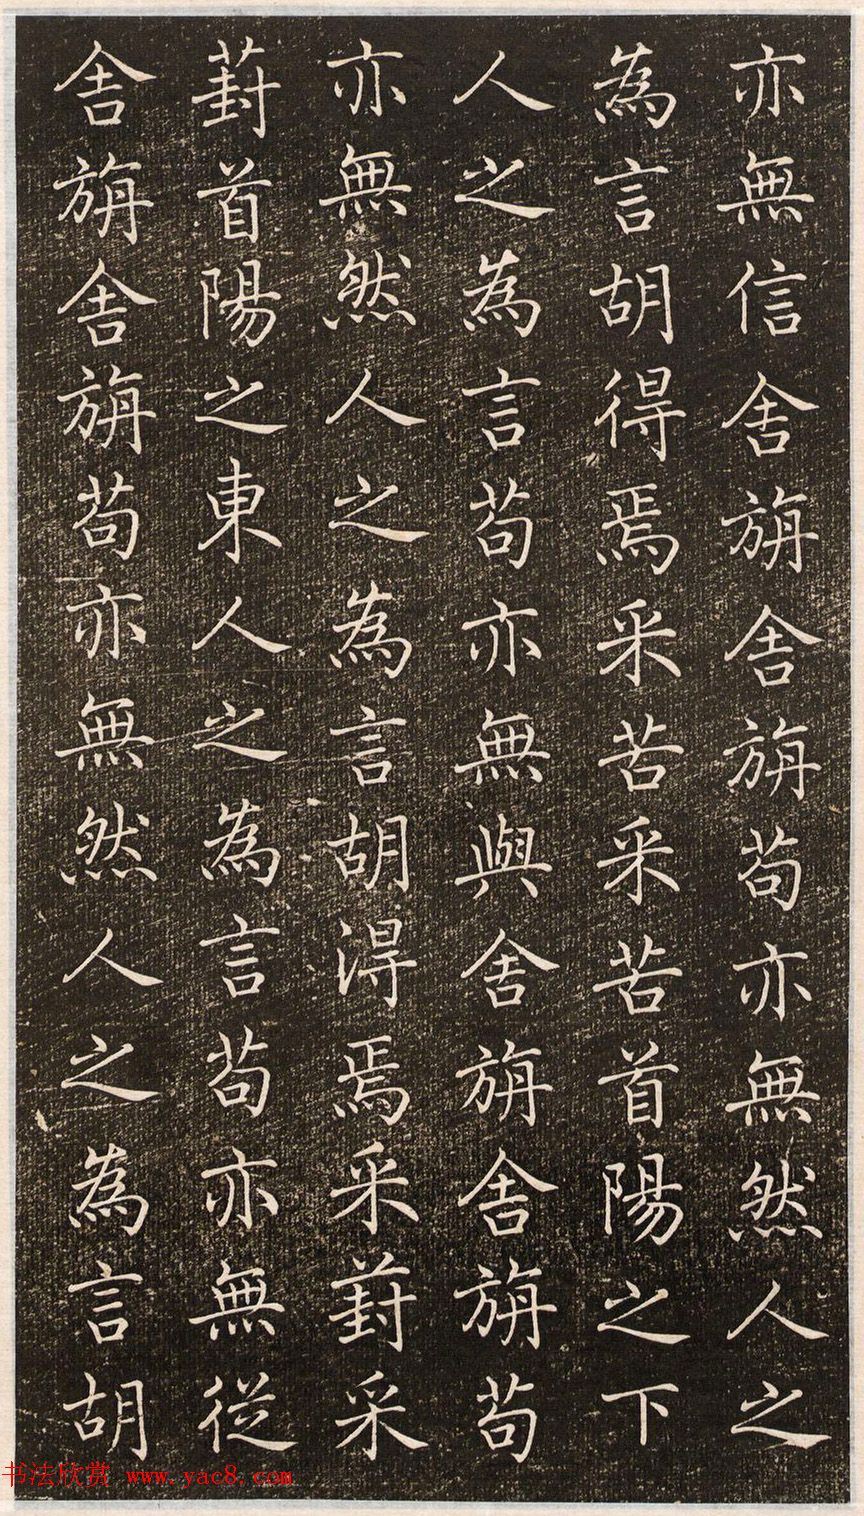 亦無信舎旃舎旃苟亦無然人之
為言胡得焉采苦采苦首陽之下
人之為言苟亦無與舎旃舎旃苟
亦無然人之為言胡淂焉采葑采
葑首陽之東人之為言苟亦無従
舎旃舎旃苟亦無然人之為言胡
书法欣赏 www.yac8.com